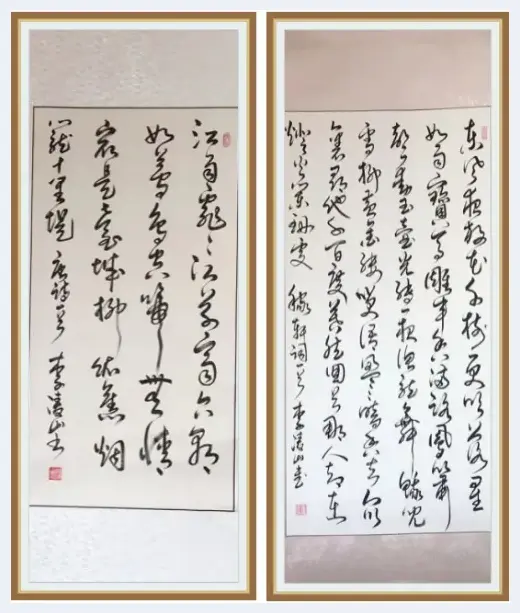 江雨霏霏江草齊六朝
如夢鸟空啼無情
最是台城柳依舊烟
籠十里堤 唐詩一首 李凌山书
东风夜放花千树更吹落星
如雨寶马雕车香满路鳳箫
声动玉壶光转一夜鱼龙舞蛾儿
雪柳黄金缕笑语盈盈暗香去众
裏尋他千百度蓦然回首那人却在
燈火阑珊处 稼轩词一首 李凌山书